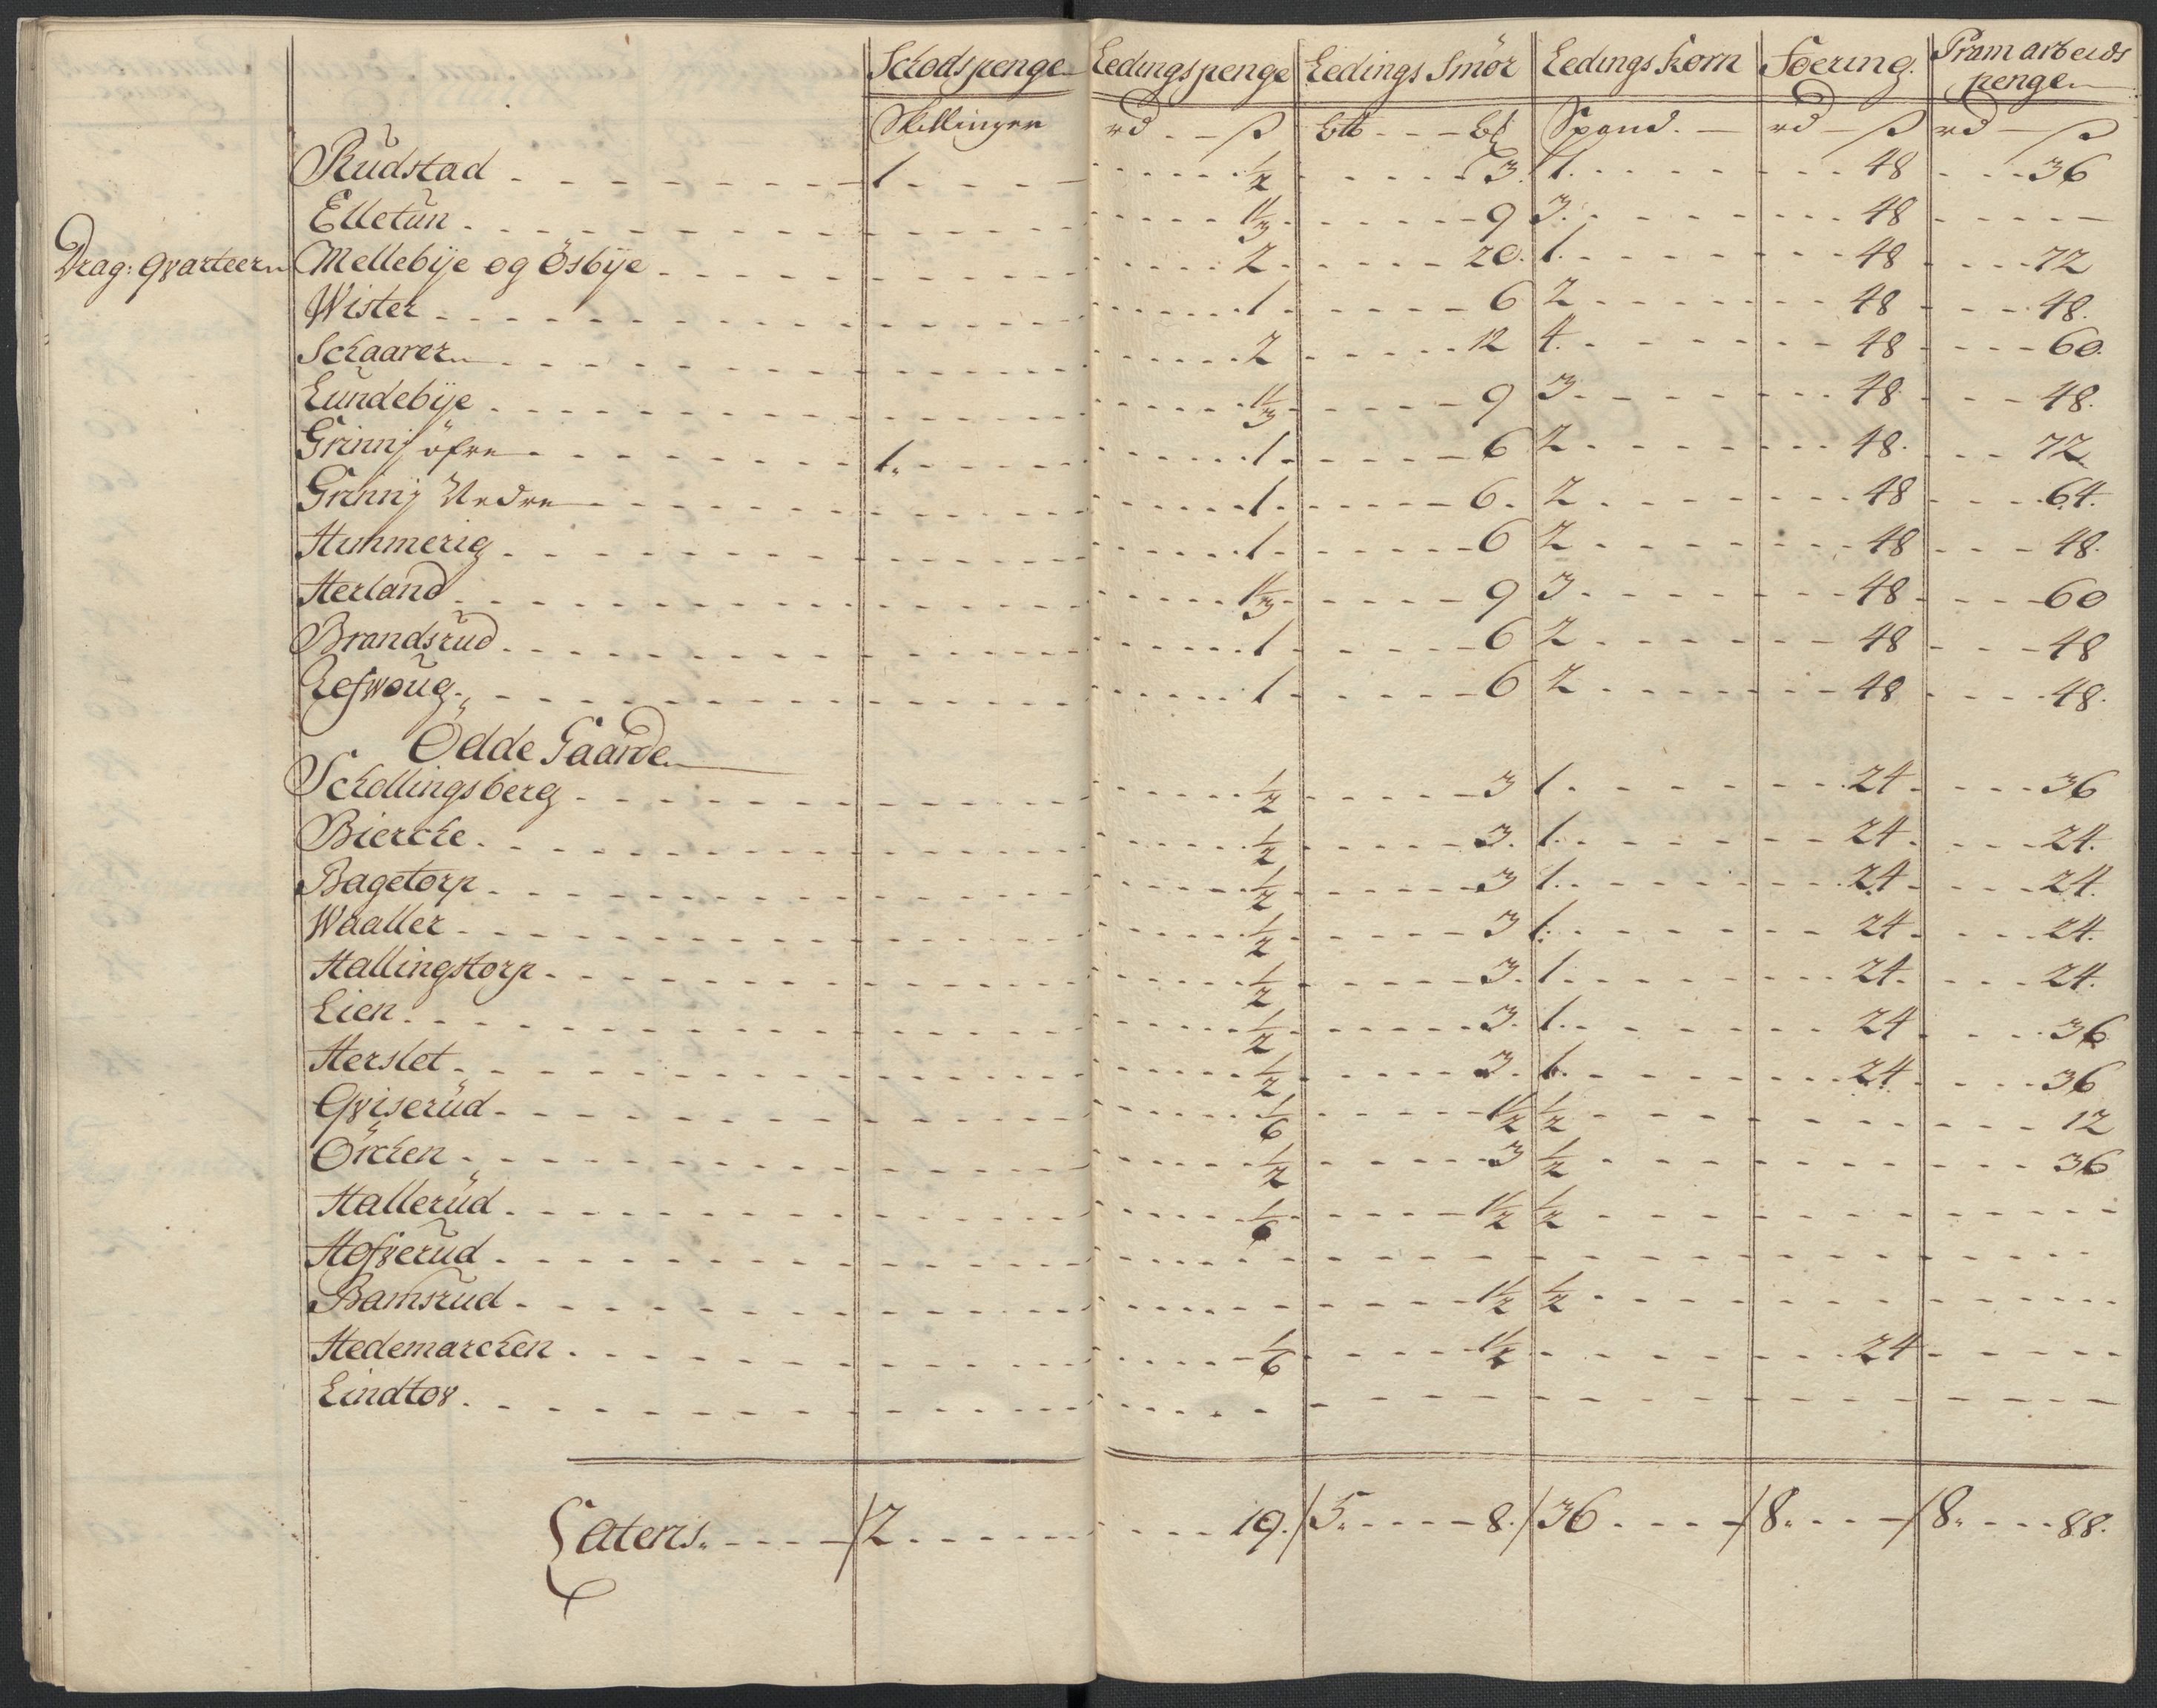 Schodspenge Ledingspenge Ledings Smör Ledings korn Foering. Pram arbeids
penge
Skillinger rd ß b℔ Spand. rd ß rd ß
Rudstad 1 ½ 3. 1. 48 36
Elletun 1⅓ 9 3. 48
Drag: qvarteer Mellebije og Ösbije 2 20. 1. 48 72
Wister 1 6 2 48 48.
Schaarer 2 12 4. 48 60.
Lundebije 1⅓ 9 3 48 48.
Grinnj öfre 1. 1 6 2 48. 72
Grinnj Nedre 1. 6. 2 48 64.
Hummerig 1 6 2 48 48.
Herland 1⅓ 9 3 48 60
Brandsrud 1 6 2 48 48
Refwoug 1 6 2 48 48.
Ödde Gaarde
Schollingsberg ½ 3 1. 24 36
Biercke ½ 3. 1. 24 24.
Bagetorp ½ 3 1. 24 24.
Waaller ½ 3 1. 24 24.
Hallingstorp ½ 3. 1. 24. 24.
Lien ½ 3. 1. 24 36
Herslet ½ 3. 1. 24 36
Qviserud ⅙ 1½ ½ 12
Örchen ½ 3 ½ 36
Hallerud ⅙ 1½ ½
Hofverud
Bamsrud 1½ ½
Hedemarchen ⅙ 1½ 24
Lindtor
Lateris 2 19. 5. 8. 36 8. 8. 88.